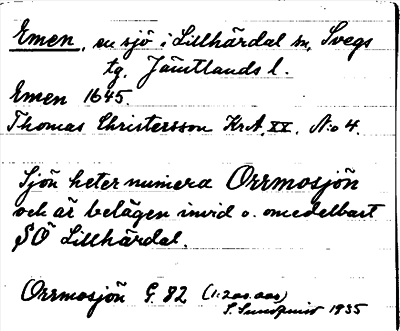 Emen, en sjö i Lillhärdal sn, Svegs
tg. Jämtlands l.
Emen 1645.
Thomas Christersson KrA, XX, N:o 4.
Sjön heter numera Orrmosjön
och är belägen invid o. omedelbart
SÖ Lillhärdal.
Orrmosjön G. 82 (1:200.000)
S. Sundqvist 1935